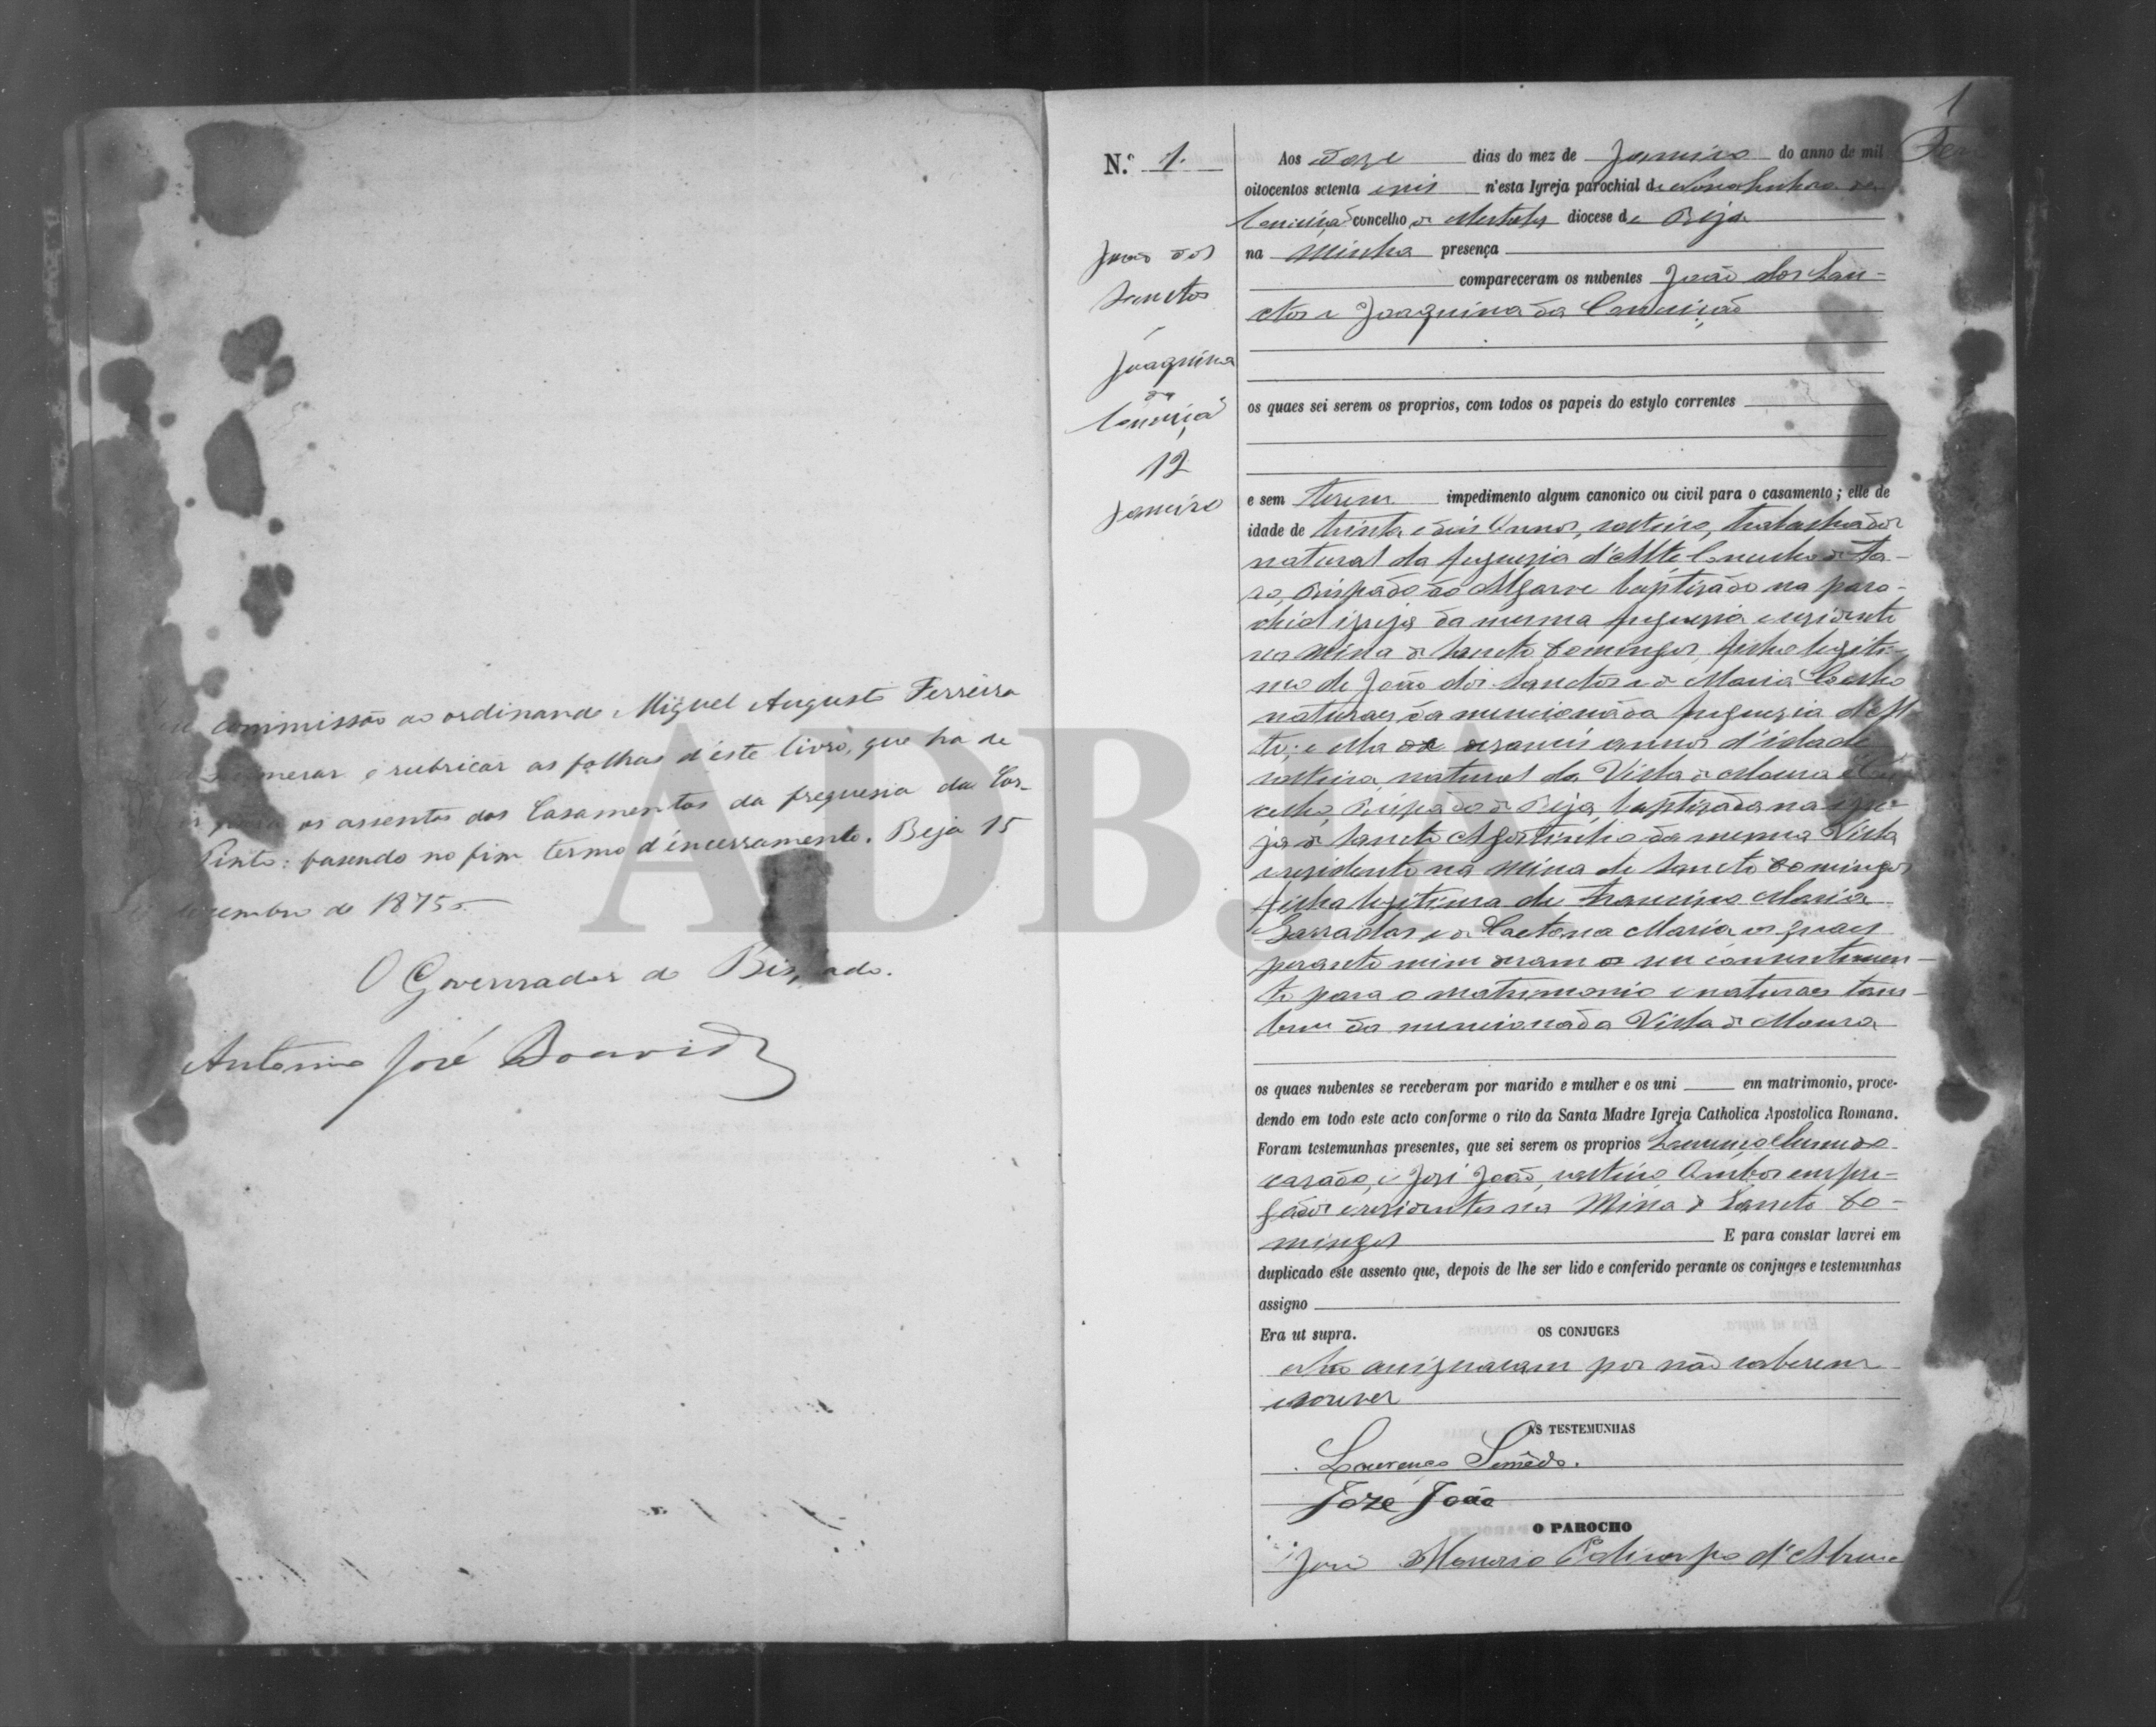 commissão ao ordinando Miguel Augusto Ferreira
numerar e rubricar as folhas d'este livro, que ha de
os assentos dos Casamentos da freguesia da Cor-
Pinto: fasendo no fim termo d'encerramento. Beja 15
Dezembro de 1875
O Governador do Bispado.
Antonio José Boavida
1
N.º 1.
João dos
Sanctos
e
Joaquina
da
Conceição
12
Janeiro
Aos doze dias do mez de Janeiro do anno de mil
oitocentos setenta e seis n'esta Igreja parochial de Nossa Senhora da
Conceição concelho de Mertola diocese de Beja
na minha presença
compareceram os nubentes João dos San-
ctos e Joaquina da Conceição
os quaes sei serem os proprios, com todos os papeis do estylo correntes
e sem terem impedimento algum canonico ou civil para o casamento; elle de
idade de trinta e dois annos, solteiro, trabalhador
natural da freguezia d'Alte Concelho de
Bispado do Algarve baptizado na paro-
chial igreja da mesma freguezia e residente
na Mina de Sancto Domingos, filho legiti-
mo de João dos Sanctos e de Maria Coelho
naturaes da mencionada freguezia d'Al-
te; e ella de dezaseis annos d'idade
solteira, natural da Villa de Moura e Con
celho, Bispado de Beja, baptizada na igre-
ja de Sancto Agostinho da mesma Villa
e residente na Mina de Sancto Domingos
filha legitima de Francisco Maria
e de Caetana Maria os quaes
perante mim deram o seu consentimen-
to para o matrimonio e naturaes tam-
bem da mencionada Villa de Moura
os quaes nubentes se receberam por marido e mulher e os uni em matrimonio, proce-
dendo em todo este acto conforme o rito da Santa Madre Igreja Catholica Apostolica Romana.
Foram testemunhas presentes, que sei serem os proprios Lourenço Semedo
casado, e José João, solteiro, ambos empre-
gados e residentes na Mina de Sancto Do-
mingos E para constar lavrei em
duplicado este assento que, depois de lhe ser lido e conferido perante os conjuges e testemunhas
assigno
Era ut supra. OS CONJUGES
Não assignaram por não saberem
escrever
AS TESTEMUNHAS
Lourenço Semêdo.
Jozé João
O PAROCHO
José Honorio Policarpo d'Abreu